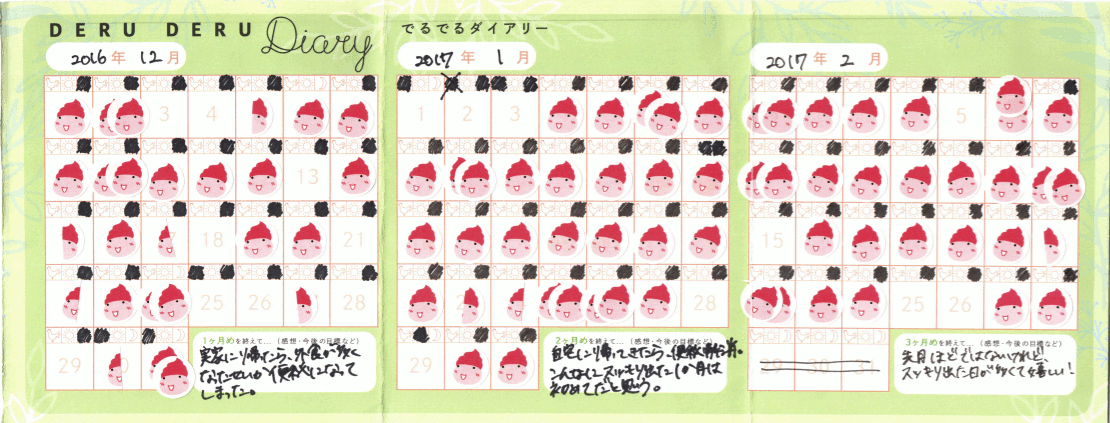 DERU DERU Diary
でるでるダイアリー
2016年 12月
3 4
13
18 21
25 26 28
29
1ヶ月めを終えて…(感想・今後の目標など)
実家に帰ったら、外食が多く
なったせいか便秘になって
しまった。
2017年 1月
1 2 3
28
29
2ヶ月めを終えて…(感想・今後の目標など)
自宅に帰ってきたら、便秘解消。
こんなにスッキリ出た1か月は
初めてだと思う。
2017年 2月
5
15
25 26
29 30 31
3ヶ月めを終えて…(感想・今後の目標など)
先月ほどではないけれど、
スッキリ出た日が多くて嬉しい!